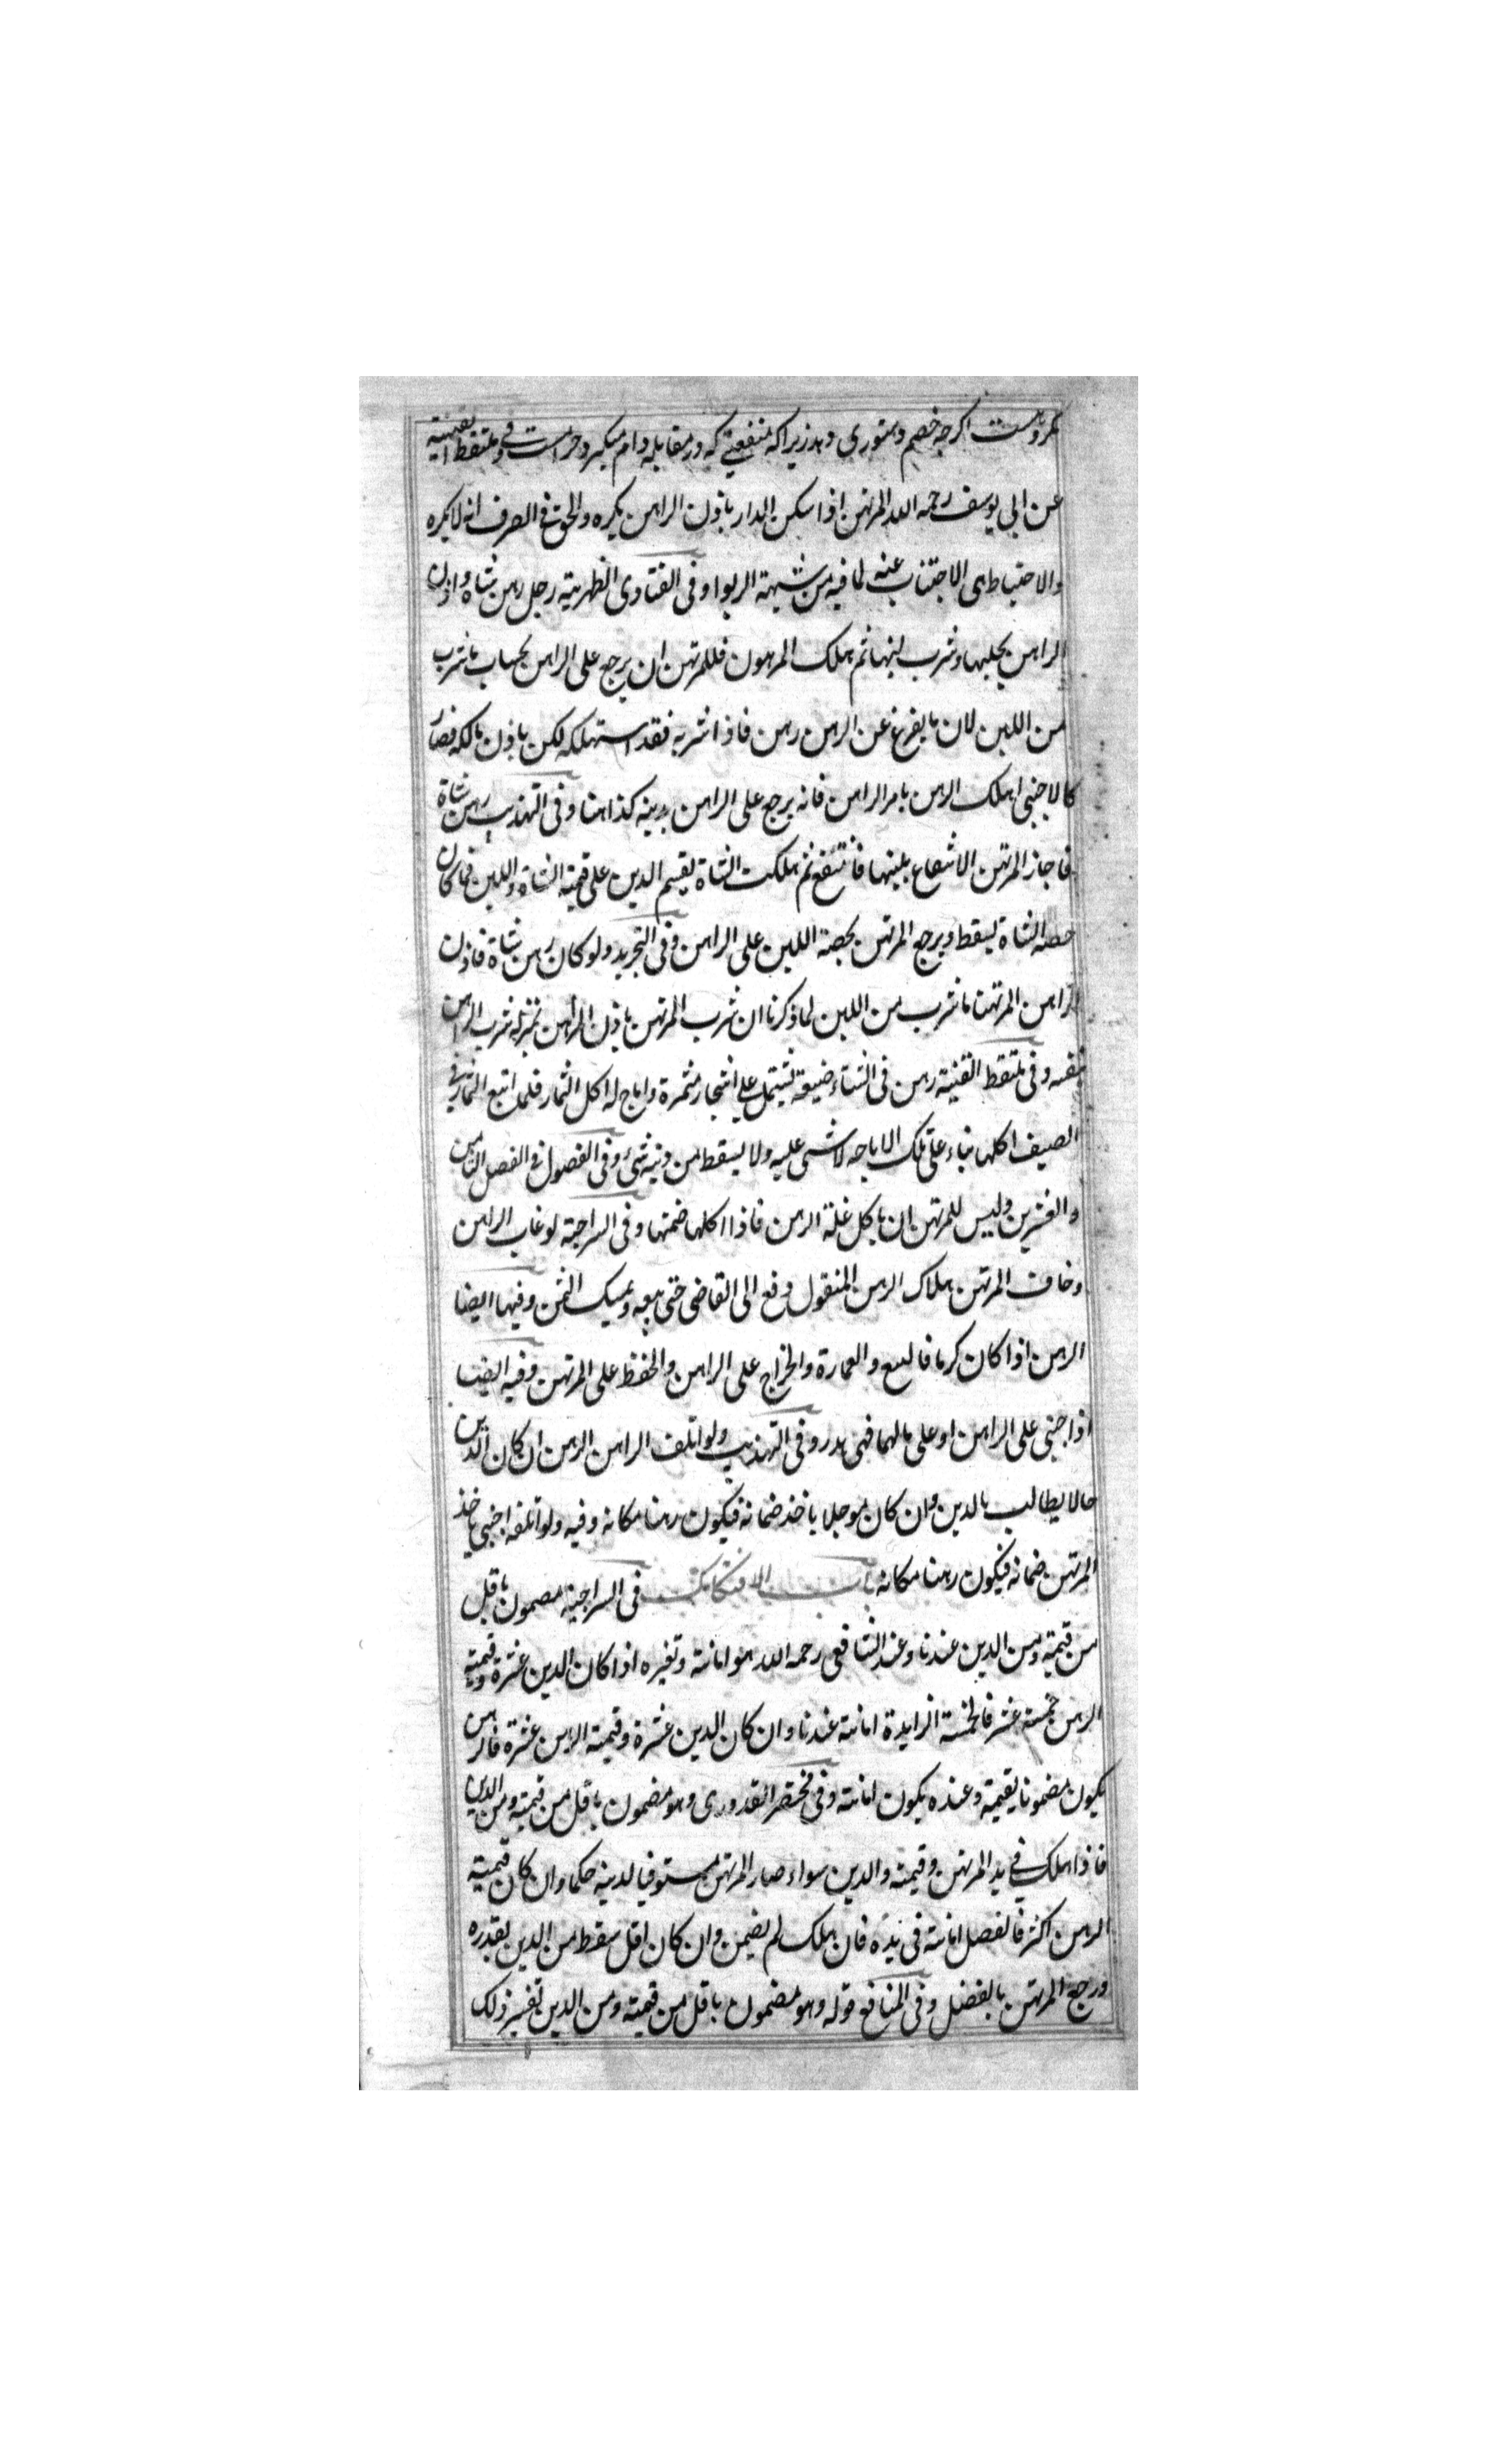 مکروهست اکرچه خصم دستوری دهد زیرا که منفعتی که در مقابله وام میکیرد حرامست وفی ملتقط القنیة
عن ابی یوسف رحمه الله المرتهن اذا سکن الدار باذن الراهن یکره والحق فی الصرف انه لا یکره
والاحتیاط هی الاجتناب عنه لما فیه من شبهة الربوا وفی الفتاوی الظهریة رجل رهن شاة واذن
الراهن بحلبها وشرب لبنها ثم هلک المرهون فللمرتهن ان یرجع علی الراهن بحساب ما شرب
من اللبن لان ما یفرغ عن الرهن رهن فاذا شربه فقد استهلکه لکن باذن مالکه فصار
کالاجنبی اهلک الرهن بامر الراهن فانه یرجع علی الراهن بدینه کذا هنا وفی التهذیب رهن شاة
فاجاز المرتهن الانتفاع بلبنها فانتفع ثم هلکت الشاة یقسم الدین علی قیمة الشاة واللبن فما کان
حصة الشاة یسقط ویرجع المرتهن بحصة اللبن علی الراهن وفی التجرید ولو کان رهن شاة فاذن
الراهن المرتهن ما شرب من اللبن لما ذکرنا ان شرب المرتهن باذن الراهن بمنزله شرب الراهن
بنفسه وفی ملتقط القنیة رهن فی الشتاء ضیعة تشتمل علی اشجار مثمرة واباح له اکل الثمار فلما اتبع الثمار فی
الصیف اکلها بناء علی تلک الاباحه لا شی علیه ولا یسقط من دینه شئ وفی الفصول فی الفصل الثامن
والعشرین ولیس للمرتهن ان یاکل غلة الرهن فاذا اکلها ضمنها وفی السراجیة لو غاب الراهن
وخاف المرتهن هلاک الرهن المنقول دفع الی القاضی حتی یبیعه ویمسک الثمن وفیها ایضا
الرهن اذا کان کرما فالبیع والعمارة والخراج علی الراهن والحفظ علی المرتهن وفیه ایضا
اذا جنی علی الراهن او علی مالهما فهی هدر وفی التهذیب ولو اتلف الراهن الرهن ان کان الدین
حالا یطالب بالدین وان کان موجلا یاخذ ضمانه فیکون رهنا مکانه وفیه ولو اتلفه اجنبی یاخذ
المرتهن ضمانه فیکون رهنا مکانه باب الافتکاک فی السراجیة مضمون باقل
من قیمته ومن الدین عندنا وعند الشافعی رحمه الله هو امانة وتفیره اذا کان الدین عشرة وقیمة
الرهن خمسة عشر فالخمسة الزایدة امانة عندنا وان کان الدین عشرة وقیمة الرهن عشرة فالرهن
یکون مضمونا بقیمته وعنده یکون امانة وفی مختصر القدوری وهو مضمون باقل من قیمته ومن الدین
فاذا هلک فی ید المرتهن وقیمته والدین سواء صار المرتهن مستوفیا لدینه حکما وان کان قیمته
الرهن اکثر فالفضل امانة فی یده فان هلک لم یضمن وان کان اقل سقط من الدین بقدره
ورجع المرتهن بالفضل وفی المنافع قوله وهو مضمون باقل من قیمته ومن الدین تفسیر ذلک